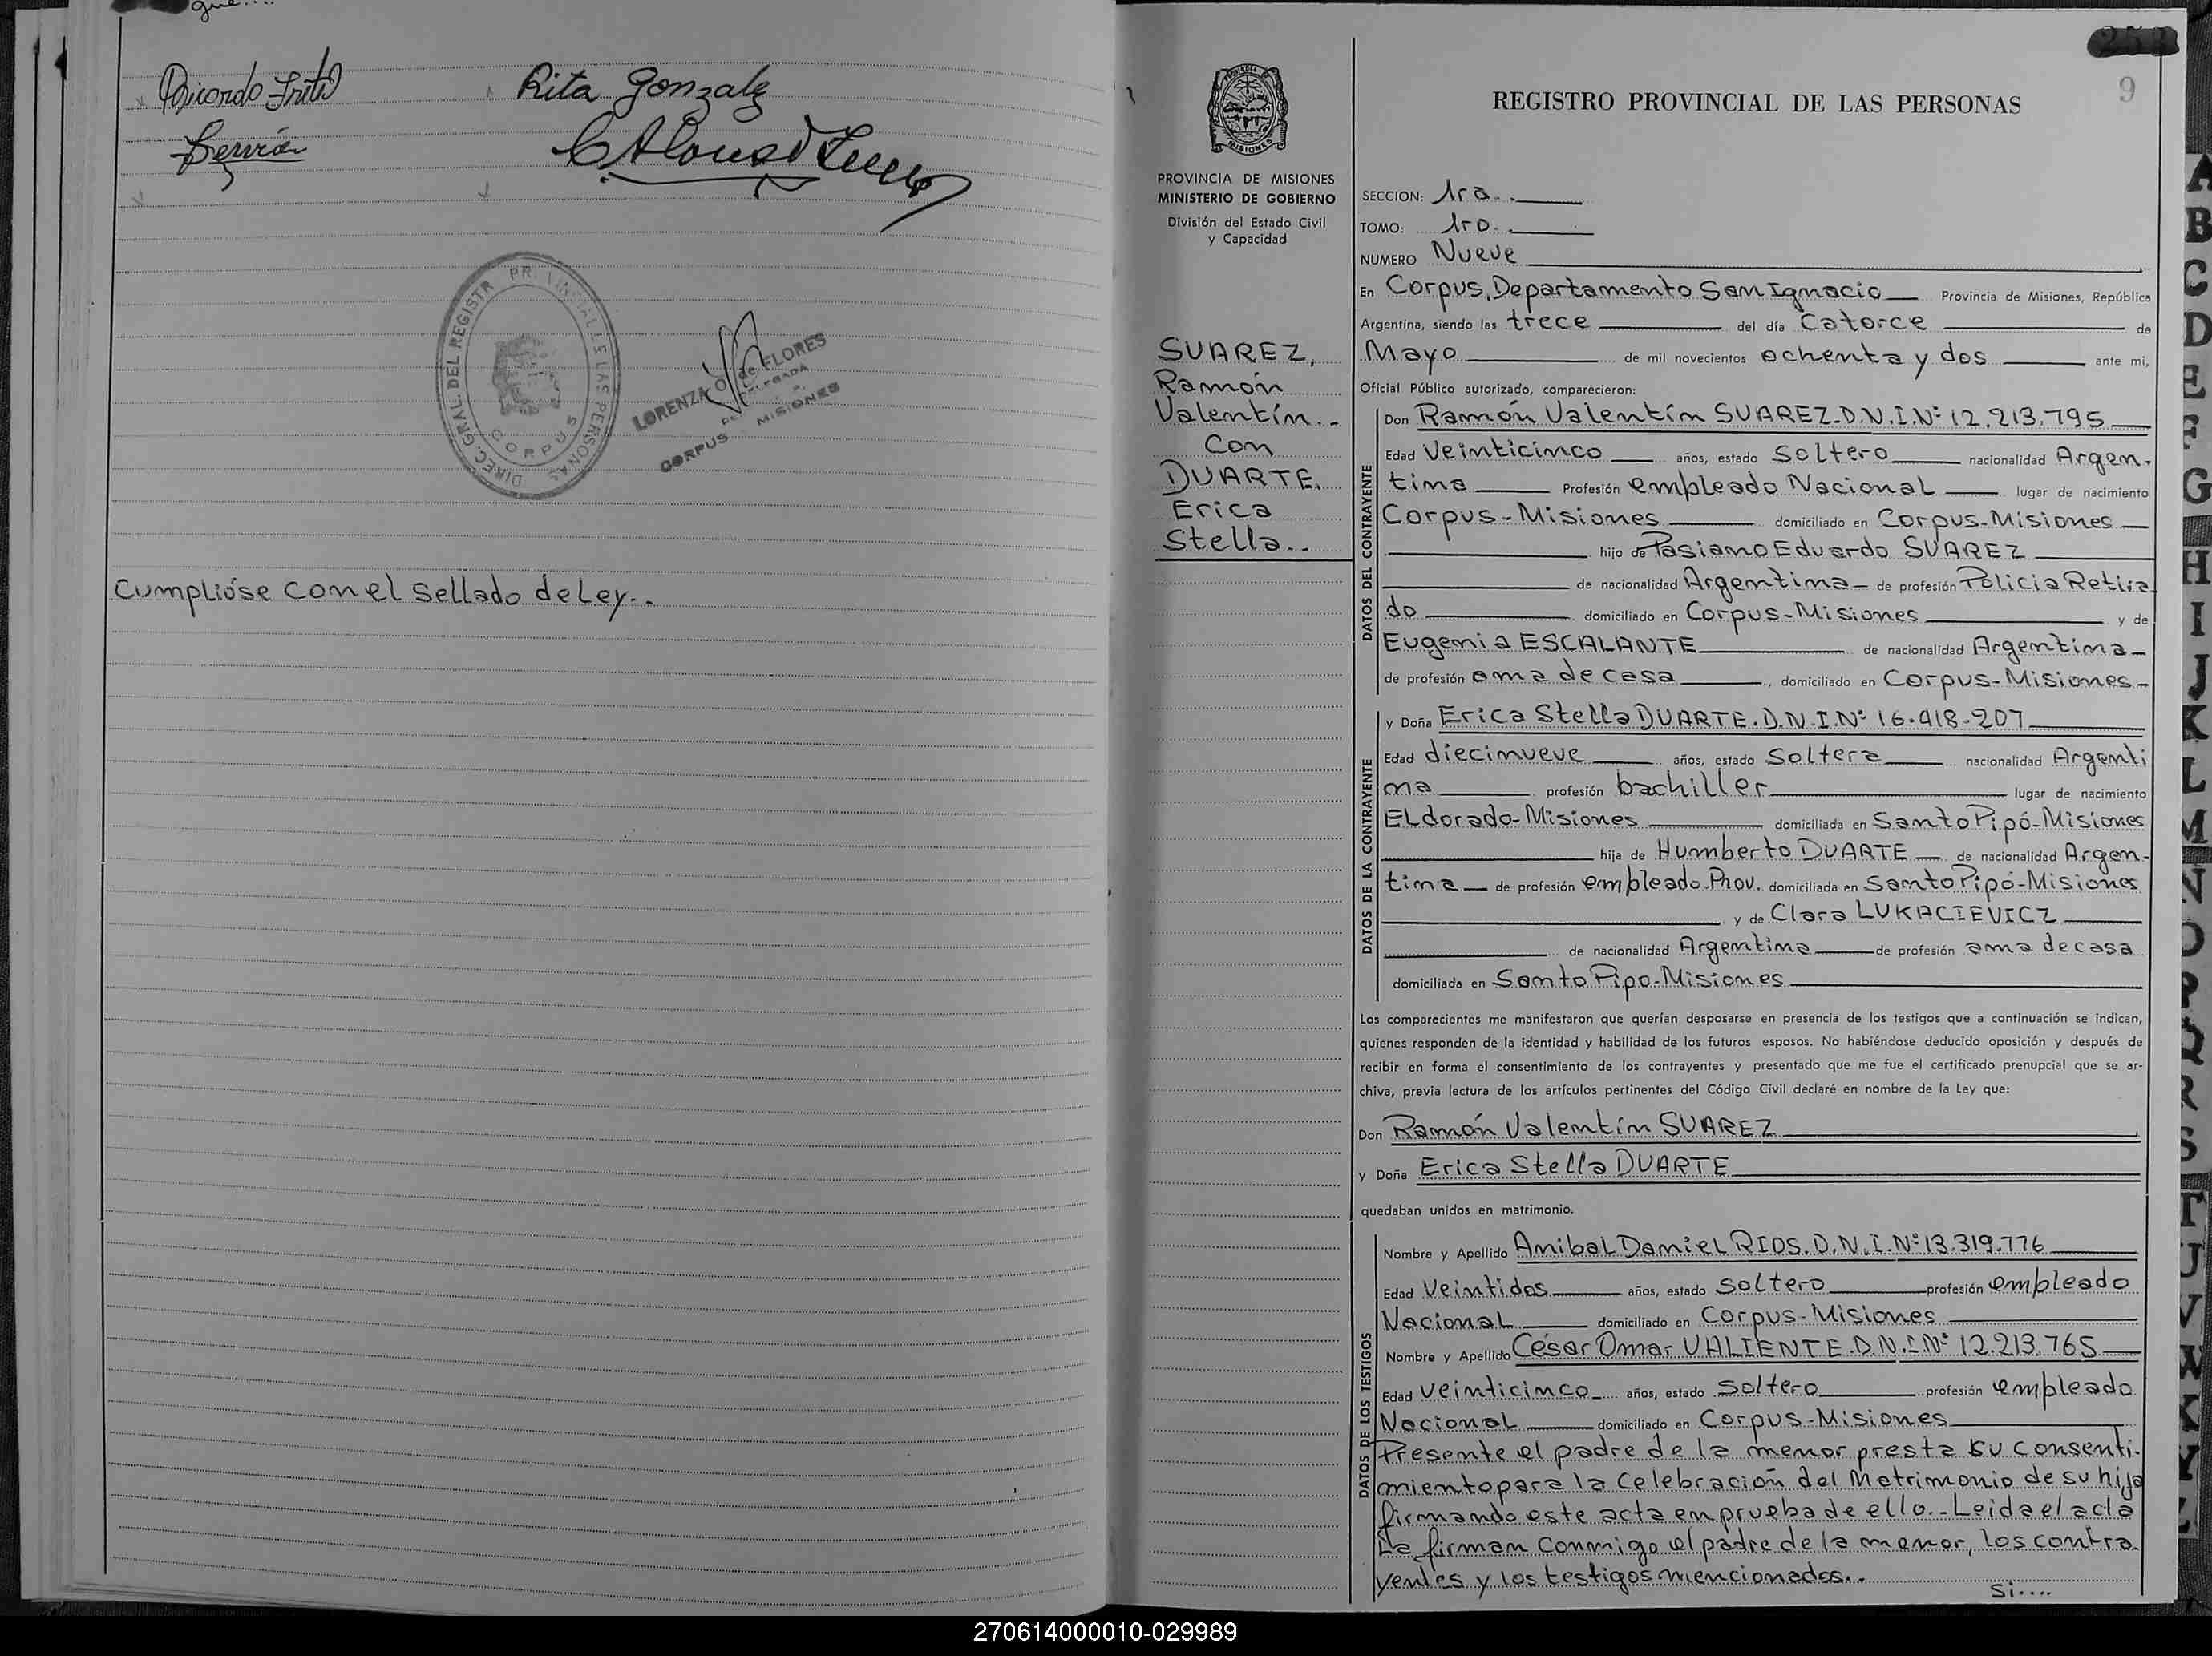 que....
Rita Gonzalez
DIREC. GRAL. DEL REGISTR PR VINCIAL DE LAS PERSONAS
CORPUS
LORENZA O. de FLORES
DELEGADA
CORPUS - MISIONES
Cumplióse con el sellado de Ley..
253
9
PROVINCIA DE MISIONES
MINISTERIO DE GOBIERNO
División del Estado Civil
y Capacidad
SUAREZ,
Ramón
Valentín..
Con
DUARTE.
Erica
Stella..
REGISTRO PROVINCIAL DE LAS PERSONAS
SECCION: 1ra..
TOMO: 1ro..
NUMERO Nueve
En Corpus, Departamento San Ignacio Provincia de Misiones, República
Argentina, siendo las trece del día Catorce de
Mayo de mil novecientos ochenta y dos ante mi,
Oficial Público autorizado, comparecieron:
DATOS DEL CONTRAYENTE
Don Ramón Valentín SUAREZ. D.N.I. Nº 12.213.795
Edad Veinticinco años, estado Soltero nacionalidad Argen-
tina Profesión empleado Nacional lugar de nacimiento
Corpus-Misiones domiciliado en Corpus-Misiones
hijo de Pasiano Eduardo SUAREZ
de nacionalidad Argentina de profesión Policia Retira
do domiciliado en Corpus-Misiones y de
Eugenia ESCALANTE de nacionalidad Argentina
de profesión ama de casa, domiciliado en Corpus-Misiones-
DATOS DE LA CONTRAYENTE
y Doña Erica Stella DUARTE. D.N.I. Nº 16.418.207
Edad diecinueve años, estado Soltera nacionalidad Argenti
na profesión bachiller lugar de nacimiento
Eldorado-Misiones domiciliada en Santo Pipó-Misiones
hija de Humberto DUARTE de nacionalidad Argen-
tina de profesión empleado Prov. domiciliada en Santo Pipó-Misiones
y de Clara LUKACIEVICZ
de nacionalidad Argentina de profesión ama de casa
domiciliada en Santo Pipo-Misiones
Los comparecientes me manifestaron que querían desposarse en presencia de los testigos que a continuación se indican,
quienes responden de la identidad y habilidad de los futuros esposos. No habiéndose deducido oposición y después de
recibir en forma el consentimiento de los contrayentes y presentado que me fue el certificado prenupcial que se ar-
chiva, previa lectura de los artículos pertinentes del Código Civil declaré en nombre de la Ley que:
Don Ramón Valentín SUAREZ
y Doña Erica Stella DUARTE
quedaban unidos en matrimonio.
DATOS DE LOS TESTIGOS
Nombre y Apellido Anibal Daniel RIOS. D.N.I. Nº 13.319.776
Edad Veintidos años, estado Soltero profesión empleado
Nacional domiciliado en Corpus-Misiones
Nombre y Apellido César Omar VALIENTE. D.N.I. Nº 12.213.765
Edad Veinticinco años, estado Soltero profesión empleado
Nacional domiciliado en Corpus-Misiones
Presente el padre de la menor presta su consenti-
miento para la Celebración del Matrimonio de su hija
firmando este acta en prueba de ello.- Leida el acta
La firman conmigo el padre de la menor, los contra-
yentes y los testigos mencionados..
Si....
A
B
C
D
E
F
G
H
I
J
K
L
M
N
O
P
Q
R
S
T
U
V
W
X
Y
Z
270614000010-029989